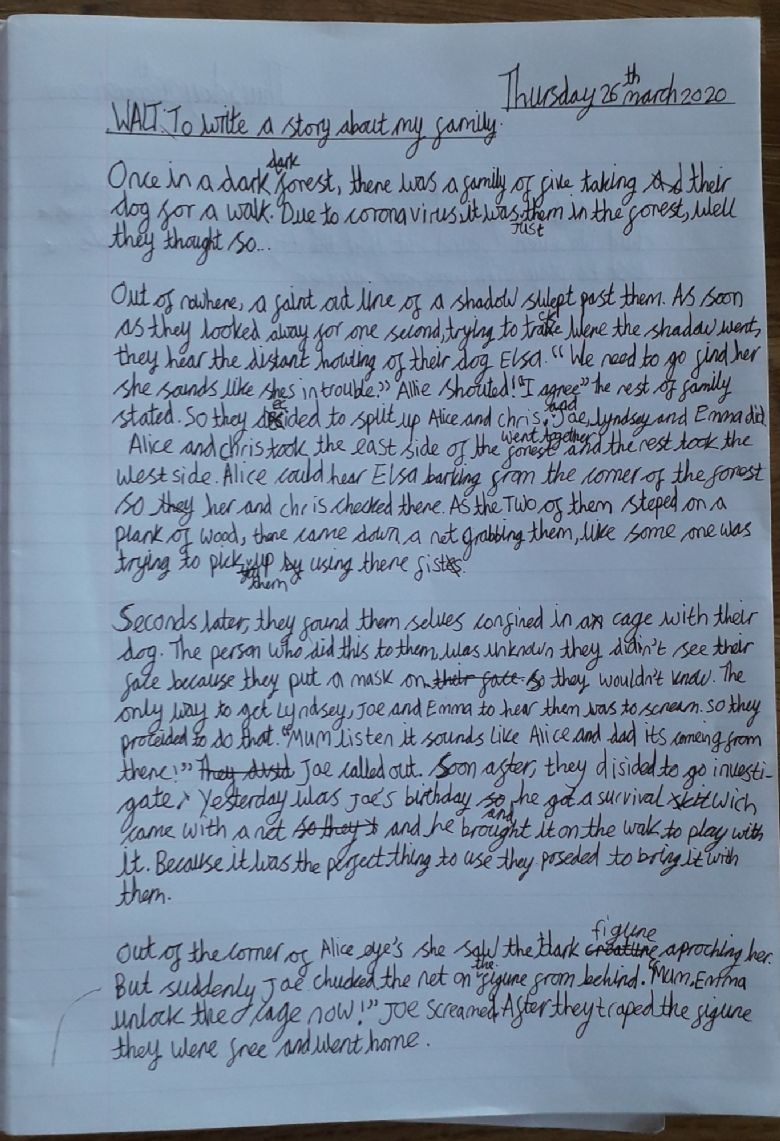 Thursday 26th march 2020
WALT: To write a story about my family.
Once in a dark dark forest, there was a family of five taking their
dog for a walk. Due to coronavirus it was just them in the forest, well
they thought so...
Out of nowhere, a faint out line of a shadow swept past them. As soon
as they looked away for one second, trying to track were the shadow went,
they hear the distant howling of their dog Elsa. "We need to go find her
she sounds like shes in trouble." Allie shouted! "I agree" the rest of family
stated. So they decided to split up Alice and chris, and Joe, Lyndsey and Emma did.
Alice and chris took the east side of the forest went together and the rest took the
west side. Alice could hear Elsa barking from the corner of the forest
so they her and chris checked there. As the Two of them steped on a
plank of wood, there came down a net grabbing them, like some one was
trying to pick them up by using there fists.
Seconds later, they found them selves confined in a cage with their
dog. The person who did this to them, was unknown they didin't see their
face because they put a mask on their face so they wouldn't know. The
only way to get Lyndsey, Joe and Emma to hear them was to scream. so they
proceided to do that. "Mum listen it sounds like Alice and dad its comeing from
there!" They Joe called out. Soon after, they disided to go investi-
gate. Yesterday was Joe's birthday so and he got a survival kit wich
came with a net so they and he brought it on the walk to play with
it. Because it was the perfect thing to use they poseded to bring it with
them.
Out of the corner of Alice eye's she saw the dark creature figure aproching her.
But suddenly Joe chucked the net on the figure from behind. "Mum, Emma
unlock the cage now!" Joe screamed. After they traped the figure
they were free and went home.